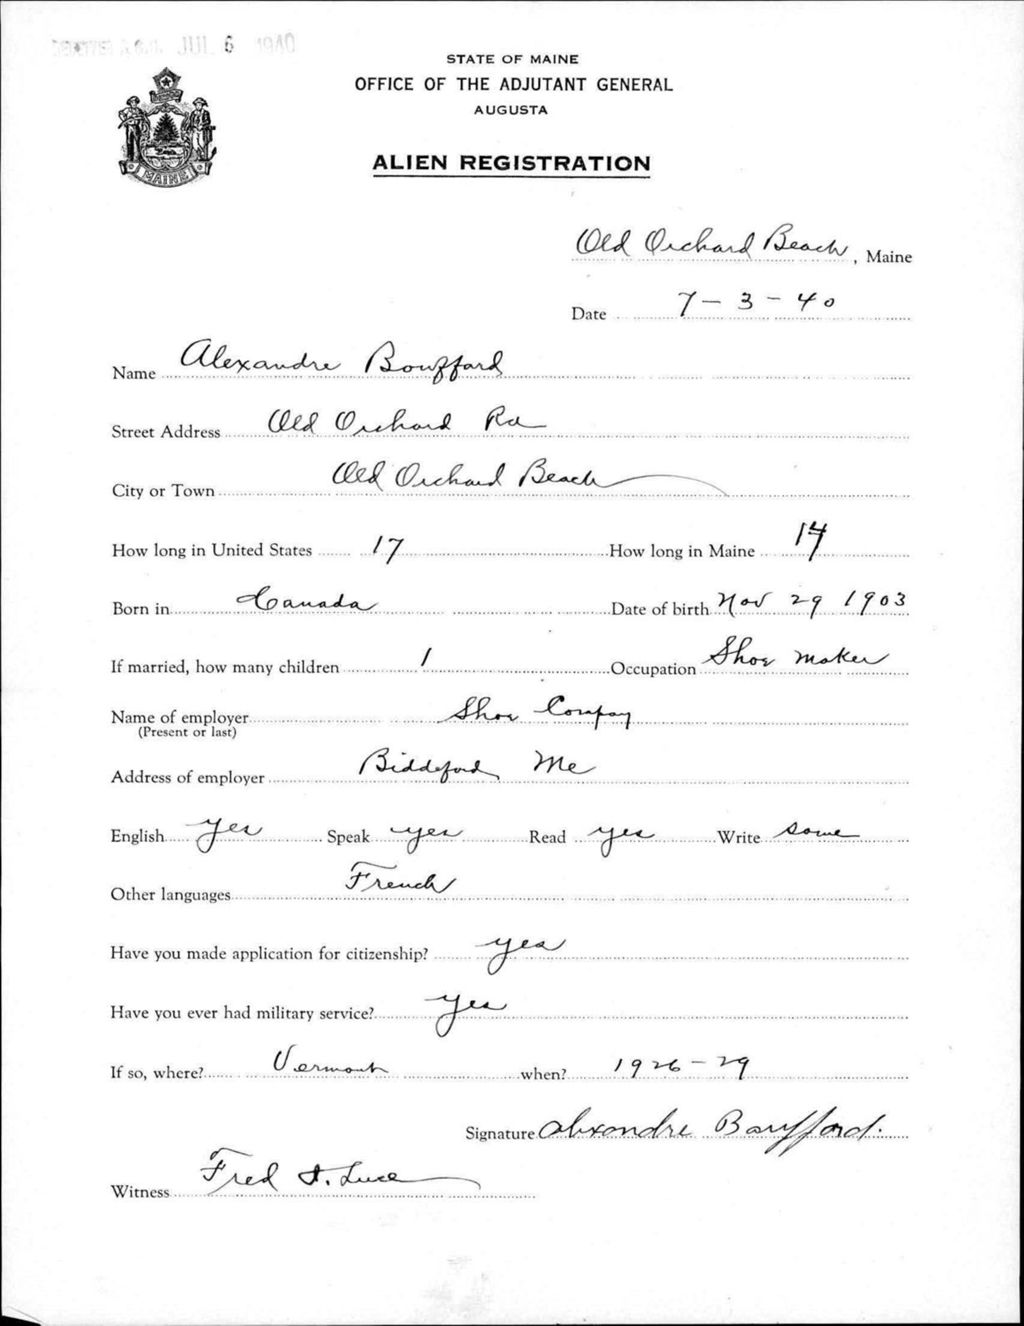 JUL 6 1940
STATE OF MAINE
OFFICE OF THE ADJUTANT GENERAL
AUGUSTA
ALIEN REGISTRATION
MAINE
Old Orchard Beach, Maine
Date 7-3-40
Name Alexandre Boufford
Street Address Old Orchard Rd
City or Town Old Orchard Beach
How long in United States 17 How long in Maine 14
Born in Canada Date of birth Nov 29 1903
If married, how many children 1 Occupation Shoe maker
Name of employer Shoe Company
(Present or last)
Address of employer Biddeford Me
English yes Speak yes Read yes Write some
Other languages French
Have you made application for citizenship? yes
Have you ever had military service? yes
If so, where? Vermont when? 1926-29
Signature Alexandre Boufford.
Witness Fred I. Luce